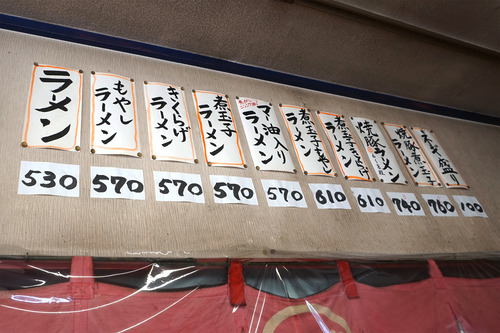 ラーメン
530
もやし
ラーメン
570
きくらげ
ラーメン
570
煮玉子
ラーメン
570
マー油入り
ラーメン
570
煮玉子もやし
ラーメン
610
煮玉子きくらげ
ラーメン
610
焼豚ラーメン
740
焼豚煮玉子
ラーメン
760
大盛り
100